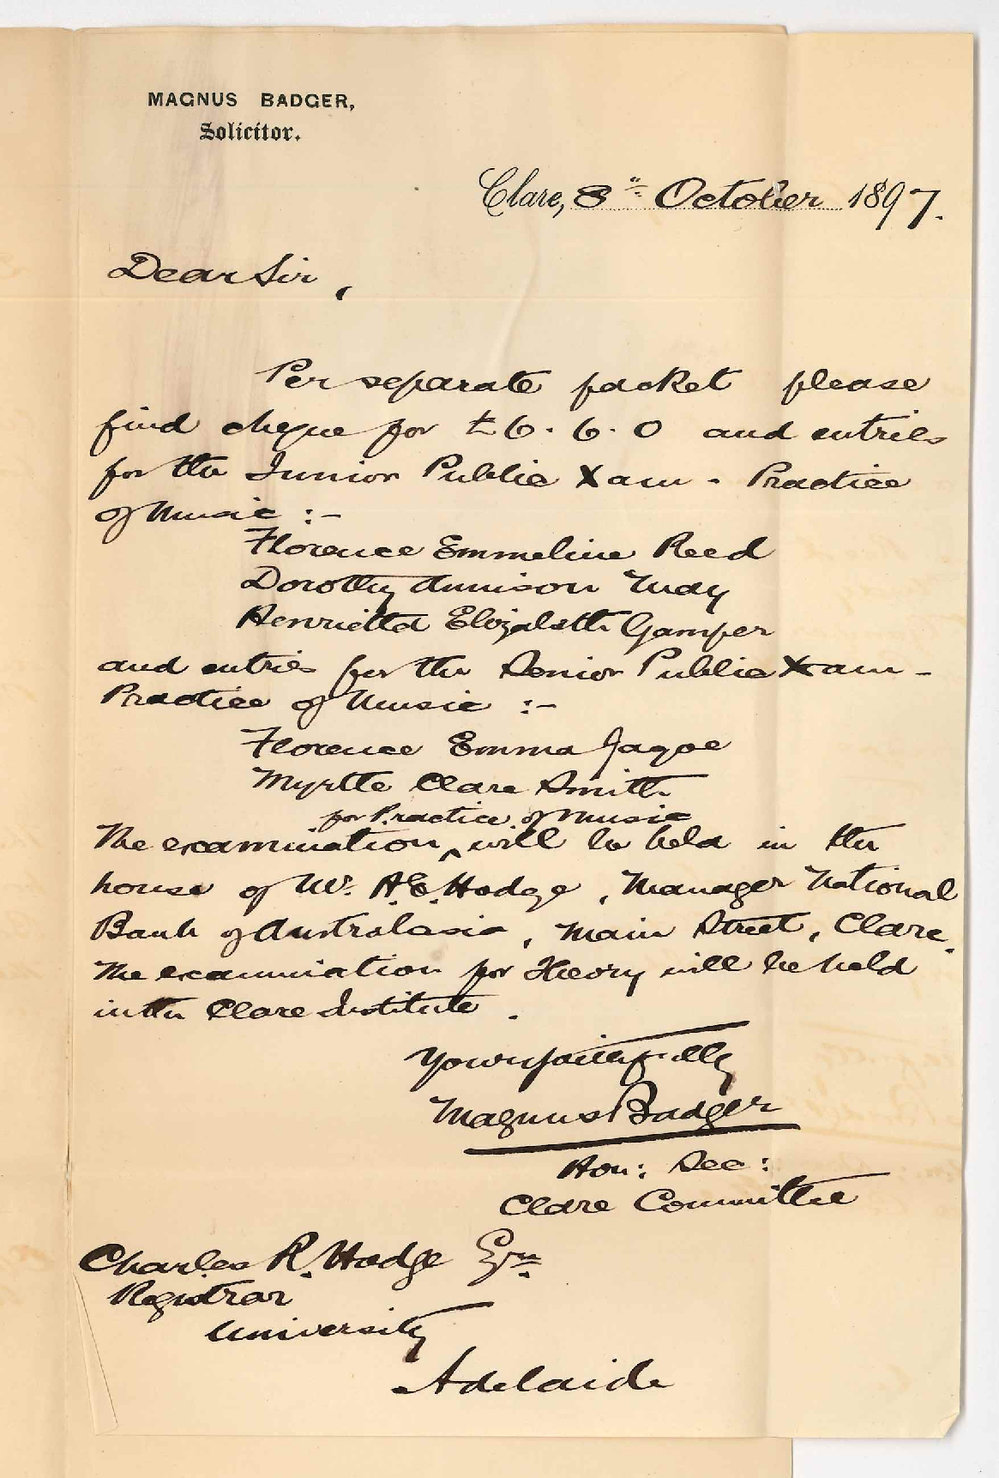 MAGNUS BADGER,
Solicitor.
Clare, 8th October 1897.
Dear Sir,
Per separate packet please
find cheque for £6.6.0 and entries
for the Junior Public Xam - Practice
of Music :-
Florence Emmeline Reed
Dorothy Annison Tilly
Henrietta Elizabeth Gamper
and entries for the Senior Public Xam -
Practice of Music :-
Florence Emma Jagoe
Myrtle Clare Smith
for Practice of Music
The examination ^ will be held in the
house of Mr. A.E. Hodge, Manager National
Bank of Australasia, Main Street, Clare.
The examination for Theory will be held
in the Clare Institute.
Yours faithfully
Magnus Badger
Hon: Sec:
Clare Committee
Charles R. Hodge Esqr
Registrar
University
Adelaide